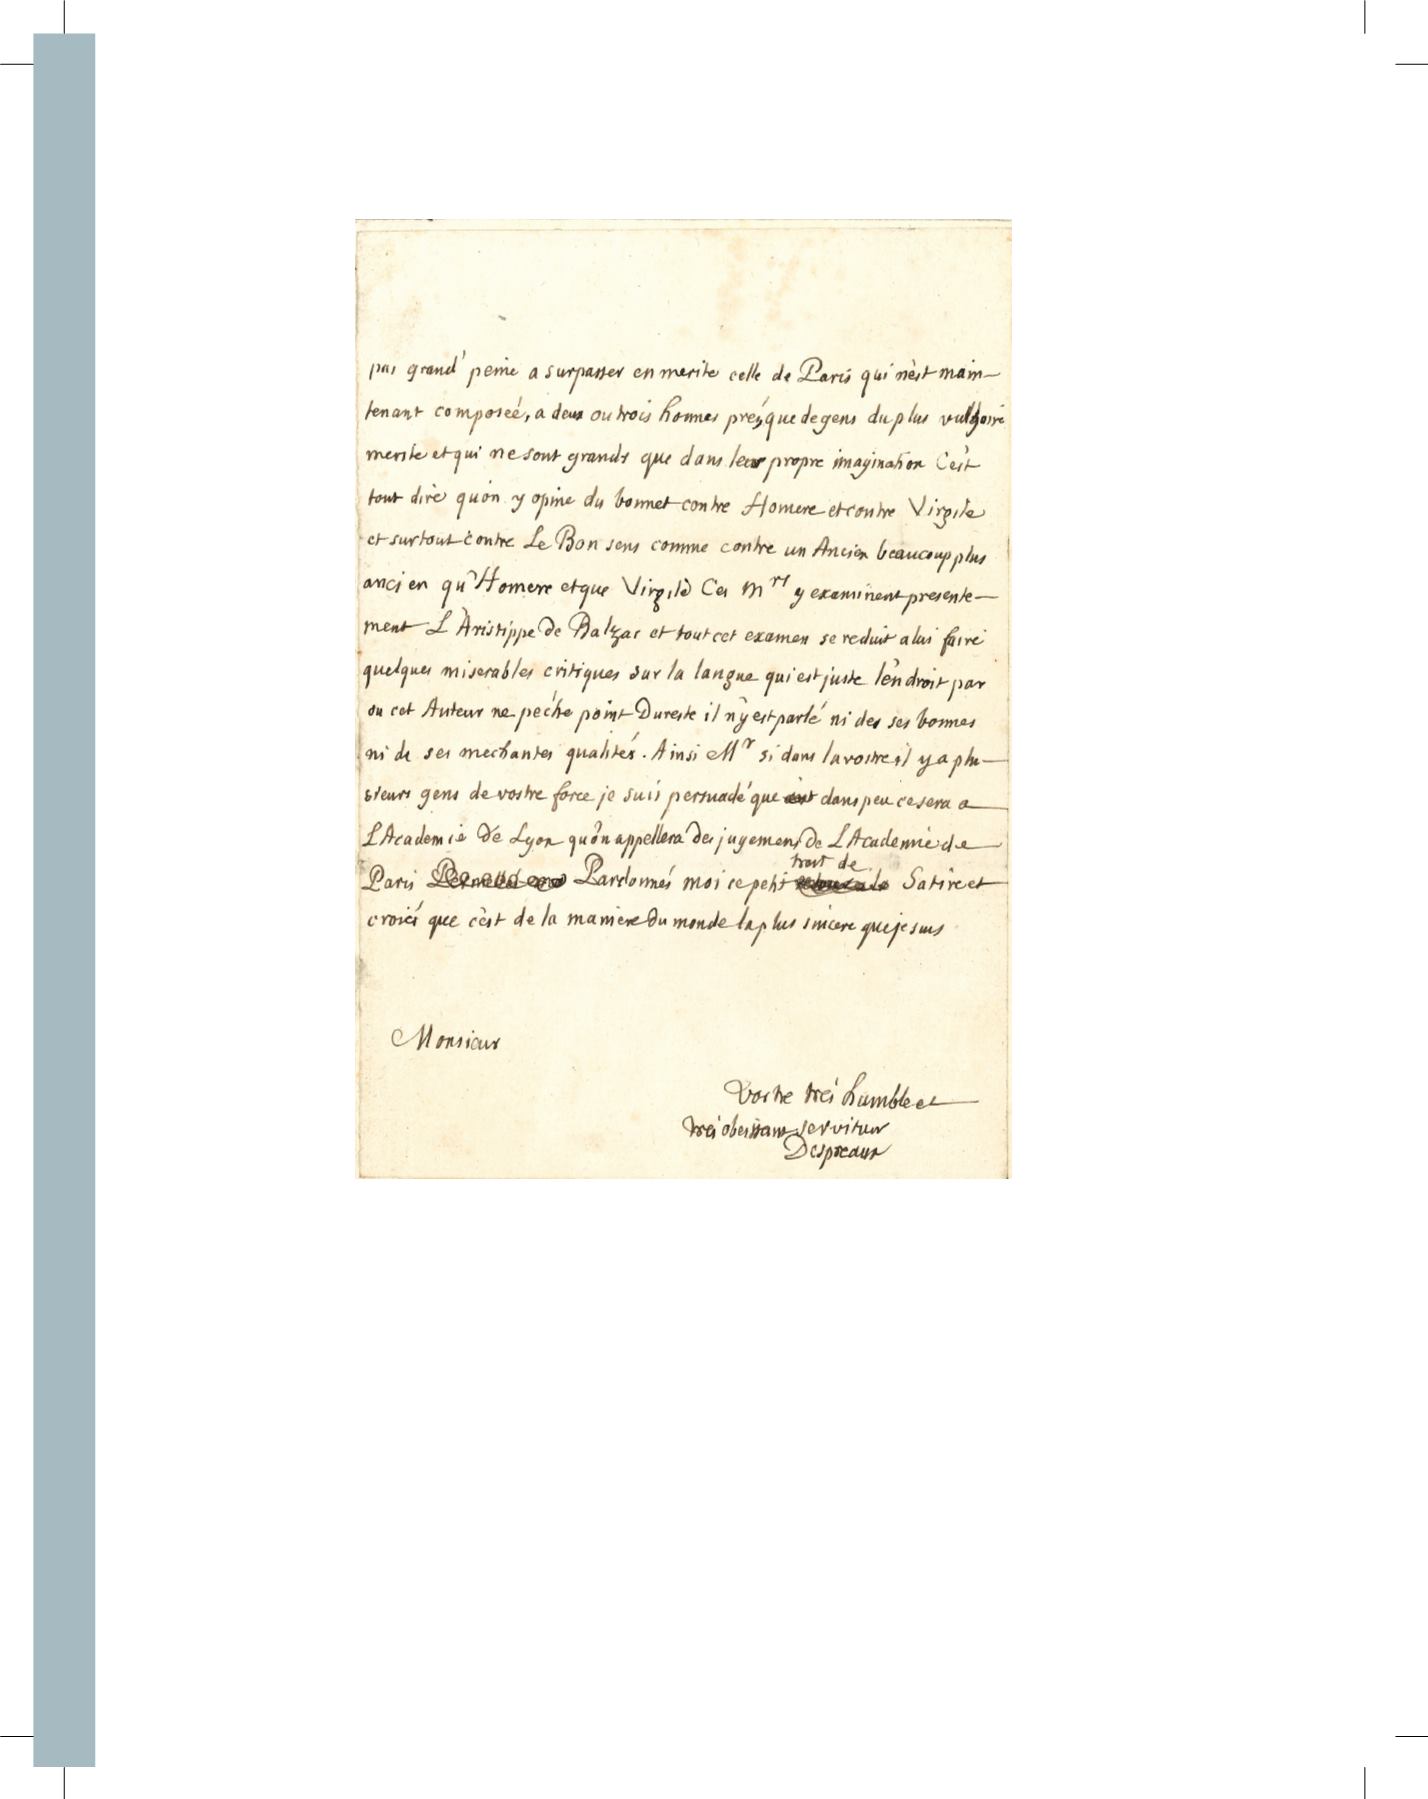 pas grand' peine a surpasser en merite celle de Paris qui n'est main-
tenant composeé, a deux ou trois homes prés, que de gens du plus vulgaire
merite et qui ne sont grands que dans leur propre imagination C'est
tout dire qu'on y opine du bonnet contre Homere et contre Virgile
et surtout contre Le Bon sens comme contre un Ancien beaucoup plus
ancien qu'Homere et que Virgile Ces Mrs y examinent presente-
ment L'Aristippe de Balzac et tout cet examen se reduit a lui faire
quelques miserables critiques sur la langue qui est juste l'endroit par
ou cet Auteur ne peche point Du reste il n'y est parlé ni des ses bonnes
ni de ses mechantes qualités. Ainsi Mr si dans la vostre il y a plu-
sieurs gens de vostre force je suis persuadé que dans peu ce sera a
L'Academie de Lyon qu'on appellera des jugemens de L'Academie de
trait de
Paris Pardonnés moi ce petit Satire et
croiés que c'est de la maniere du monde la plus sincere que je suis
Monsieur
Vostre trés humble et
trés obeissant serviteur
Despreaux